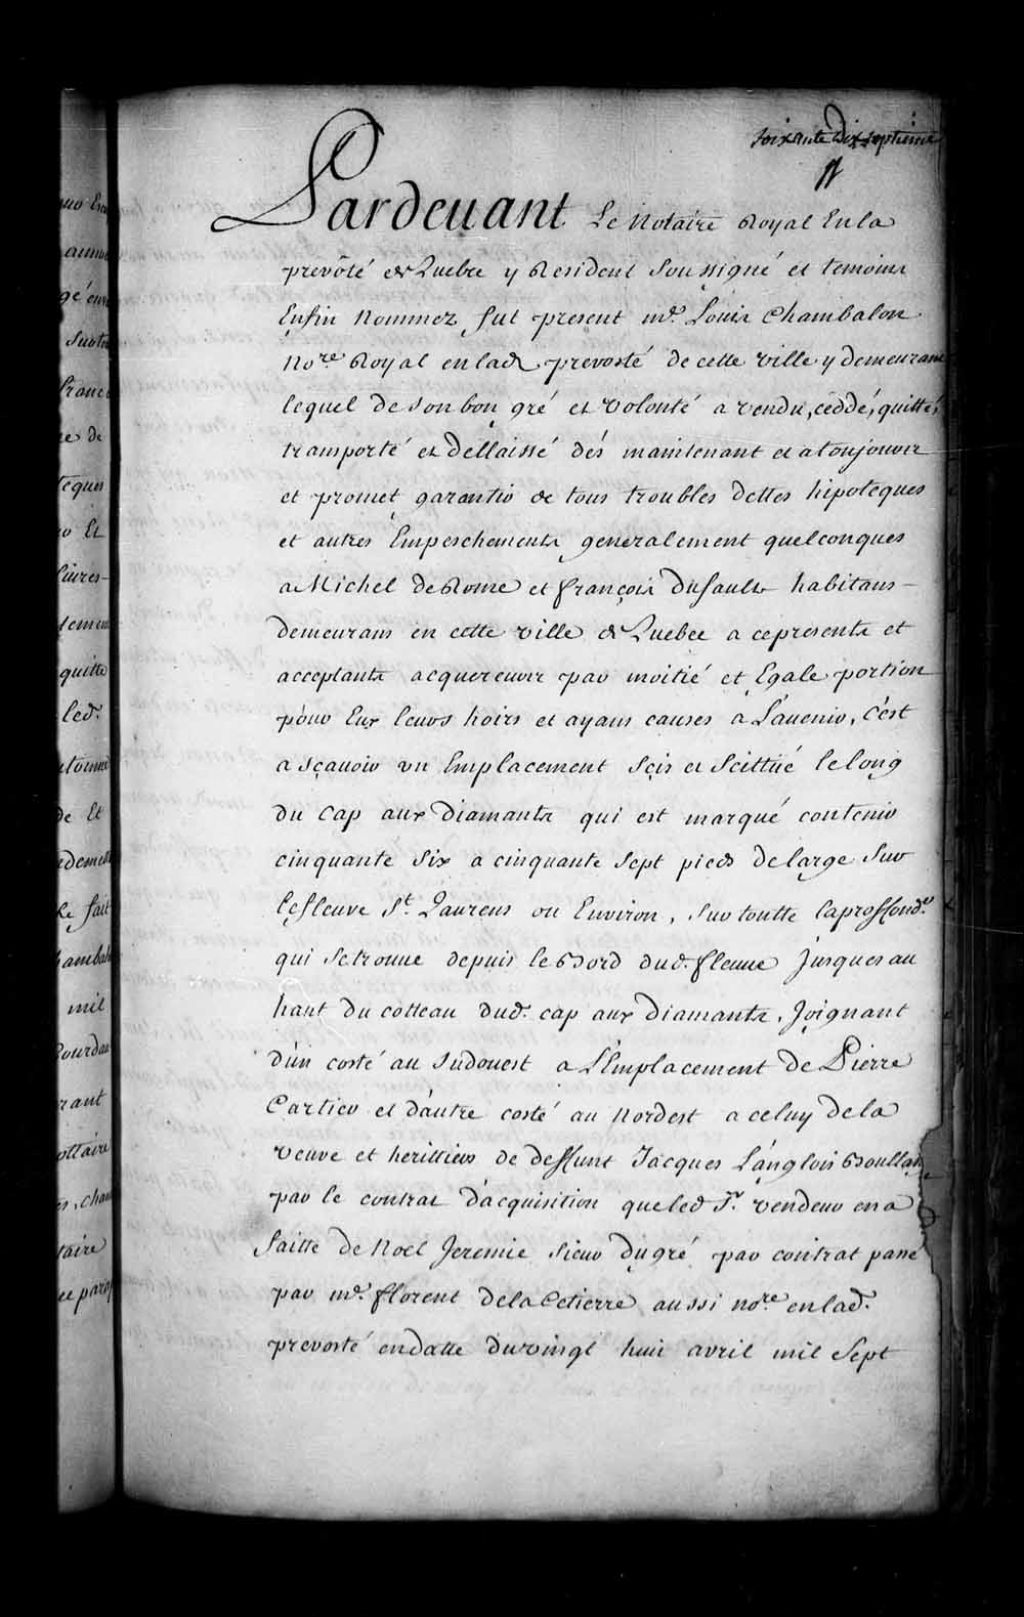 soixante Dixseptieme
Pardeuant Le Notaire Royal En la
prevôté de Quebec y Resident Soussigné et temoins
Enfin Nommez fut present me. Louis Chambalon
No.re Royal en lad. prevosté de cette ville y demeurant
lequel de son bon gré et volonté a vendu, ceddé, quitté,
transporté et dellaissé dés maintenant et a toujours
et promet garantir de tous troubles dettes hipoteques
et autres Empeschements generalement quelconques
a Michel de Rome et françois dufault habitans
demeurans en cette ville de Quebec a ce presents et
acceptants acquereurs par moitié et Egale portion
pour Eux leurs hoirs et ayans causes a L'auenir, C'est
a sçauoir un Emplacement Scis et Scittüé le long
du Cap aux Diamants qui est marqué contenir
cinquante Six a cinquante Sept pieds de large Sur
le fleuve St. Laurens ou Environ, Sur toutte la proffond.r
qui Se trouue depuis le Bord dud. fleuue Jusques au
haut du cotteau dud. cap aux Diamants, Joignant
d'un costé au Sudouest a L'Emplacement de Pierre
Cartier et d'autre costé au Nordest a celuy de la
veuve et herittiers de deffunt Jacques Langlois
par le contrat d'acquisition que led Sr. vendeur en a
faitte de Noel Jeremie Sieur Dugré par contrat passé
par me. florent de la Cetierre aussi no.re en lad.
prevosté en datte du vingt huit avril mil Sept
quitte
led.
de Et
mil